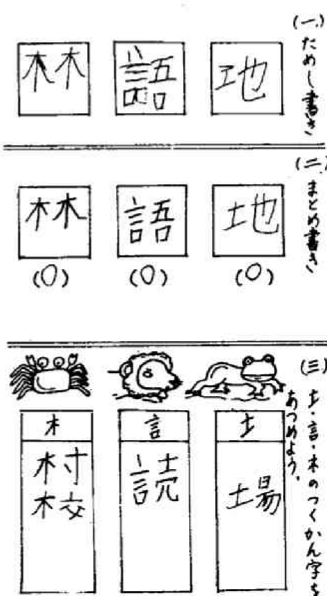 (一)ためし書き
地
語
林
(二)まとめ書き
地
語
林
(○)
(○)
(○)
(三)土・言・木のつくかん字を
あつめよう。
土
場
言
読
木
村
校